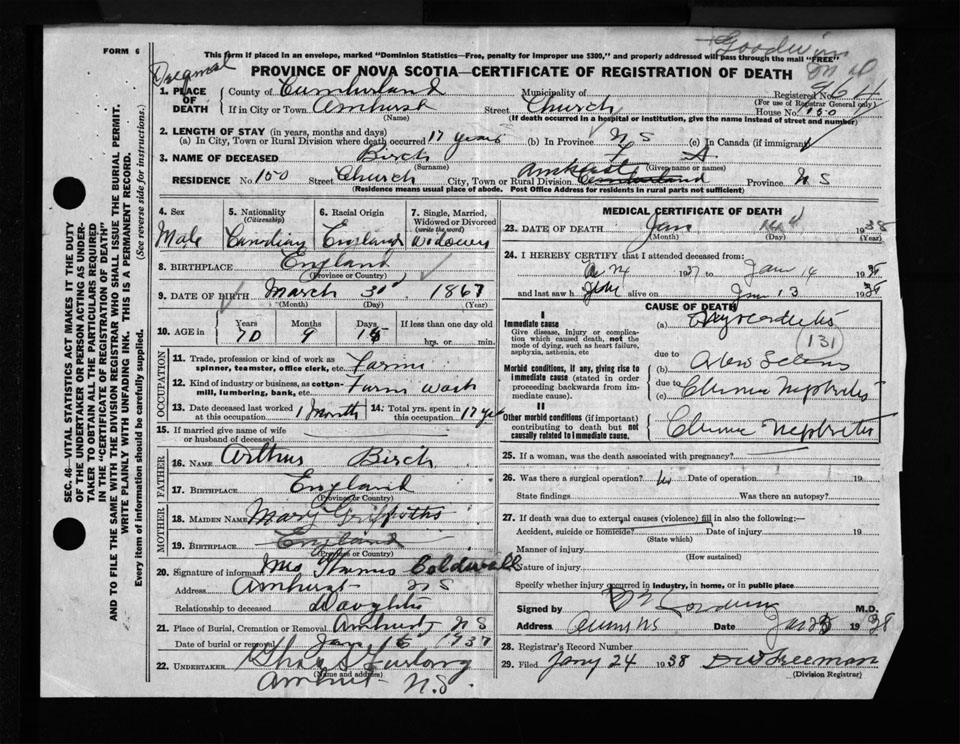 Goodwin
FORM 6
This form if placed in an envelope, marked "Dominion Statistics—Free, penalty for improper use $300," and properly addressed will pass through the mail "FREE"
PROVINCE OF NOVA SCOTIA—CERTIFICATE OF REGISTRATION OF DEATH
1. PLACE OF DEATH
County of Cumberland Municipality of Registered No. 964
(For use of Registrar General only)
If in City or Town Amherst Street Church House No. 150
(Name) (If death occurred in a hospital or institution, give the name instead of street and number)
2. LENGTH OF STAY (in years, months and days)
(a) In City, Town or Rural Division where death occurred 17 years (b) In Province N S (c) In Canada (if immigrant)
3. NAME OF DECEASED Birch A
(Surname) (Given name or names)
RESIDENCE No. 150 Street Church City, Town or Rural Division Amherst Cumberland Province N S
(Residence means usual place of abode. Post Office Address for residents in rural parts not sufficient)
4. Sex
Male
5. Nationality
(Citizenship)
Canadian
6. Racial Origin
England
7. Single, Married, Widowed or Divorced
(write the word)
Widower
8. BIRTHPLACE England
(Province or Country)
9. DATE OF BIRTH March 30 1867
(Month) (Day) (Year)
10. AGE in
Years Months Days If less than one day
70 9 15 hrs. or min.
OCCUPATION
11. Trade, profession or kind of work as
spinner, teamster, office clerk, etc. Farmer
12. Kind of industry or business, as cotton-
mill, lumbering, bank, etc. Farm work
13. Date deceased last worked
at this occupation 1 Month
14. Total yrs. spent in
this occupation 17 yrs
15. If married give name of wife
or husband of deceased
FATHER
16. NAME Arthur Birch
17. BIRTHPLACE England
(Province or Country)
MOTHER
18. MAIDEN NAME Mary Griffiths
19. BIRTHPLACE England
(Province or Country)
20. Signature of informant Mrs Thomas Coldwell
Address Amherst N S
Relationship to deceased Daughter
21. Place of Burial, Cremation or Removal Amherst N S
Date of burial or removal Jan 16 1937
22. UNDERTAKER Furlong
(Name and address)
Amherst N.S.
MEDICAL CERTIFICATE OF DEATH
23. DATE OF DEATH Jan 14 1938
(Month) (Day) (Year)
24. I HEREBY CERTIFY that I attended deceased from:
24 1937 to Jan 14 1938
and last saw h alive on Jan 13 1938
CAUSE OF DEATH
I
Immediate cause
Give disease, injury or complication which caused death, not the mode of dying, such as heart failure, asphyxia, asthenia, etc
(a) Myocarditis
(131)
due to
Morbid conditions, if any, giving rise to immediate cause (stated in order proceeding backwards from immediate cause).
(b)
due to
(c) Chronic Nephritis
II
Other morbid conditions (if important) contributing to death but not causally related to immediate cause.
Chronic Nephritis
25. If a woman, was the death associated with pregnancy?
26. Was there a surgical operation? No Date of operation 19
State findings Was there an autopsy?
27. If death was due to external causes (violence) fill in also the following:—
Accident, suicide or homicide? Date of injury 19
(State which)
Manner of injury
(How sustained)
Nature of injury
Specify whether injury occurred in industry, in home, or in public place
Signed by M.D.
Address Date Jan 1938
28. Registrar's Record Number
29. Filed Jany 24 1938 Freeman
(Division Registrar)
SEC. 46—VITAL STATISTICS ACT MAKES IT THE DUTY
OF THE UNDERTAKER OR PERSON ACTING AS UNDER-
TAKER TO OBTAIN ALL THE PARTICULARS REQUIRED
IN THE "CERTIFICATE OF REGISTRATION OF DEATH"
AND TO FILE THE SAME WITH THE DIVISION REGISTRAR WHO SHALL ISSUE THE BURIAL PERMIT.
WRITE PLAINLY WITH UNFADING INK. THIS IS A PERMANENT RECORD.
Every item of information should be carefully supplied. (See reverse side for instructions.)